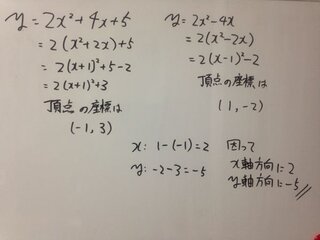 y = 2x² + 4x + 5
= 2(x² + 2x) + 5
= 2(x+1)² + 5 - 2
= 2(x+1)² + 3
頂点の座標は
(-1, 3)
y = 2x² - 4x
= 2(x² - 2x)
= 2(x-1)² - 2
頂点の座標は
(1, -2)
x: 1 - (-1) = 2 因って
x軸方向に2
y: -2 - 3 = -5
y軸方向に-5